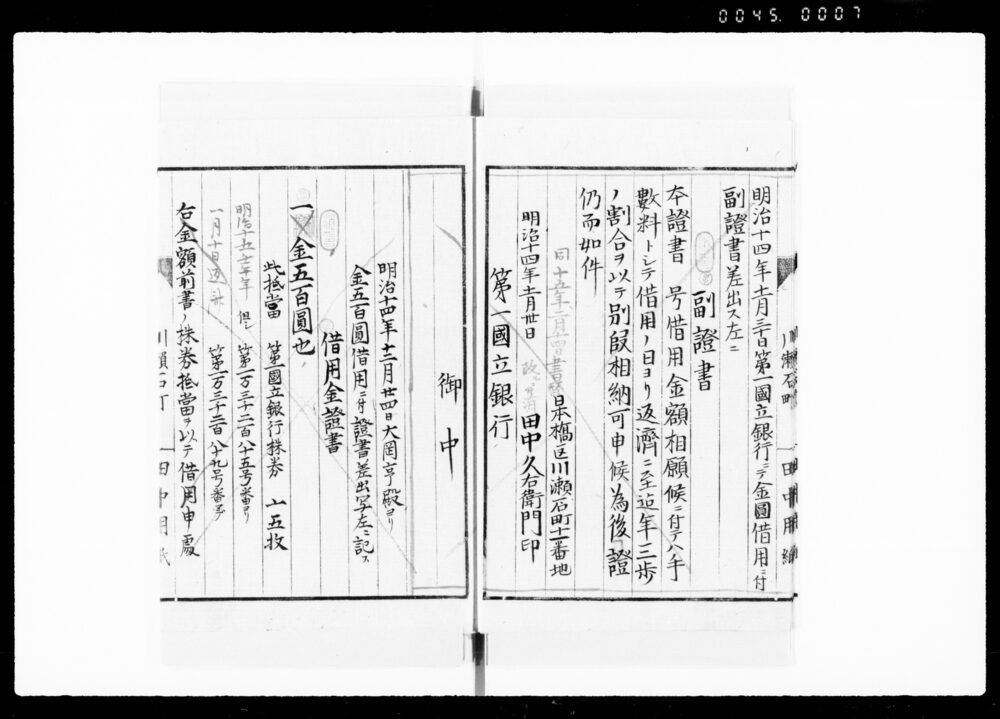 0045.0007
明治十四年十一月三十日第一國立銀行ニテ金圓借用ニ付
副證書差出ス左ニ
副證書
本證書 号借用金額相願候ニ付テハ手
數料トシテ借用ノ日ヨリ返濟ニ至迠年三歩
ノ割合ヲ以テ別段相納可申候為後證
仍而如件
日本橋区川瀬石町十一番地
明治十四年十一月卅日 田中久右衛門印
第一國立銀行
御中
明治十四年十二月廿四日大岡亨殿ヨリ
金五百圓借用ニ付證書差出写左ニ記ス
借用金證書
一金五百圓也
此抵當 第一國立銀行株券 五枚
明治十五年 但シ 第一万三千二百八十五号番ヨリ
一月十日返済 第一万三千二百八十九号番迠
右金額前書ノ株券抵當ヲ以テ借用申處
川瀬石町
田中用紙